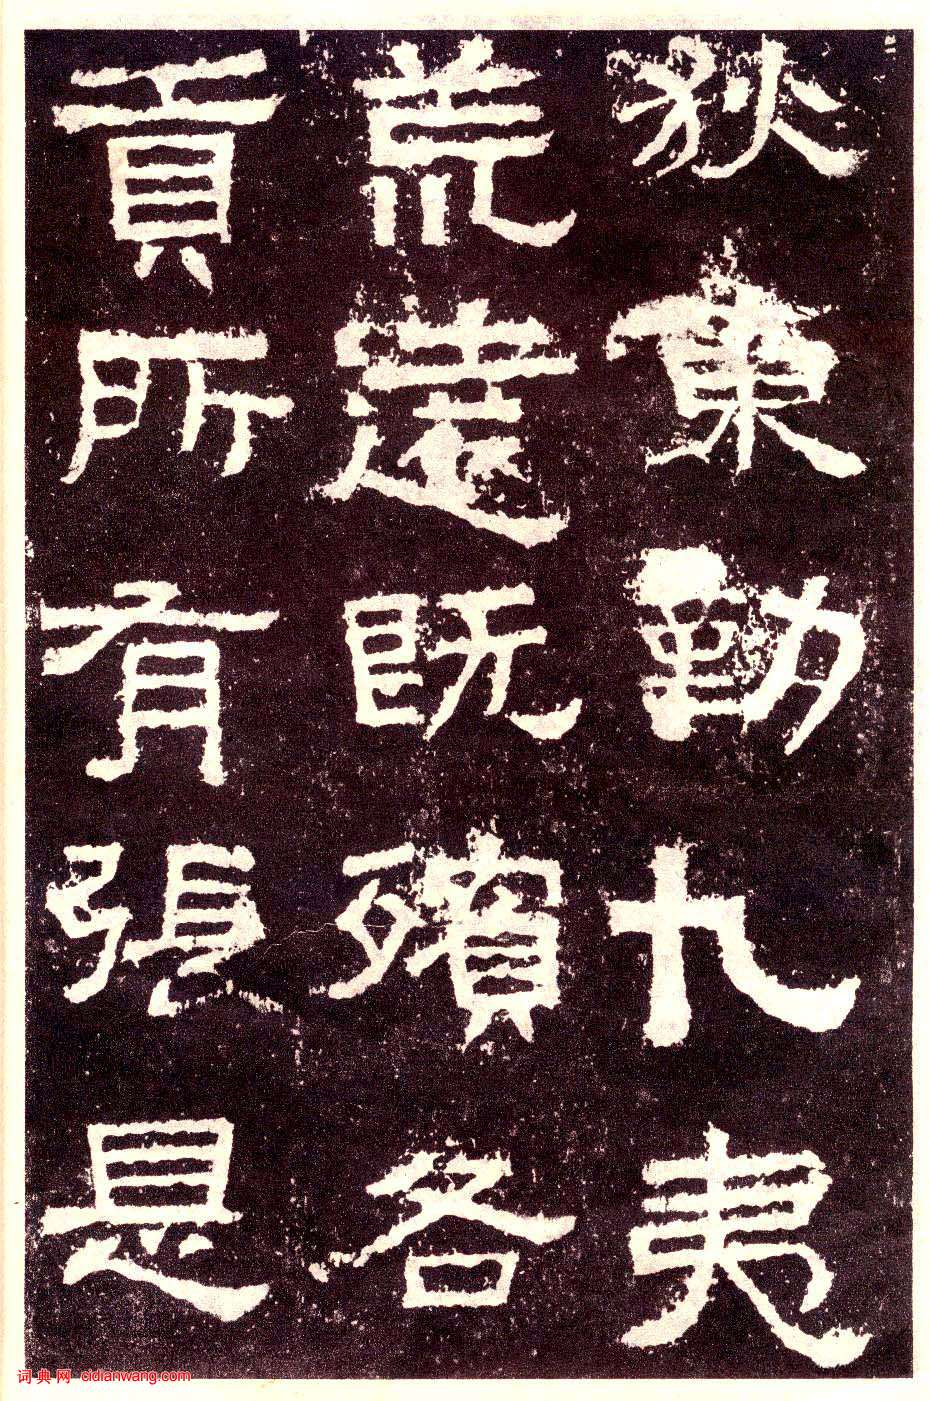 狄東勤九夷
荒遠既殯各
貢所有張是
词典网 cidianwang.com